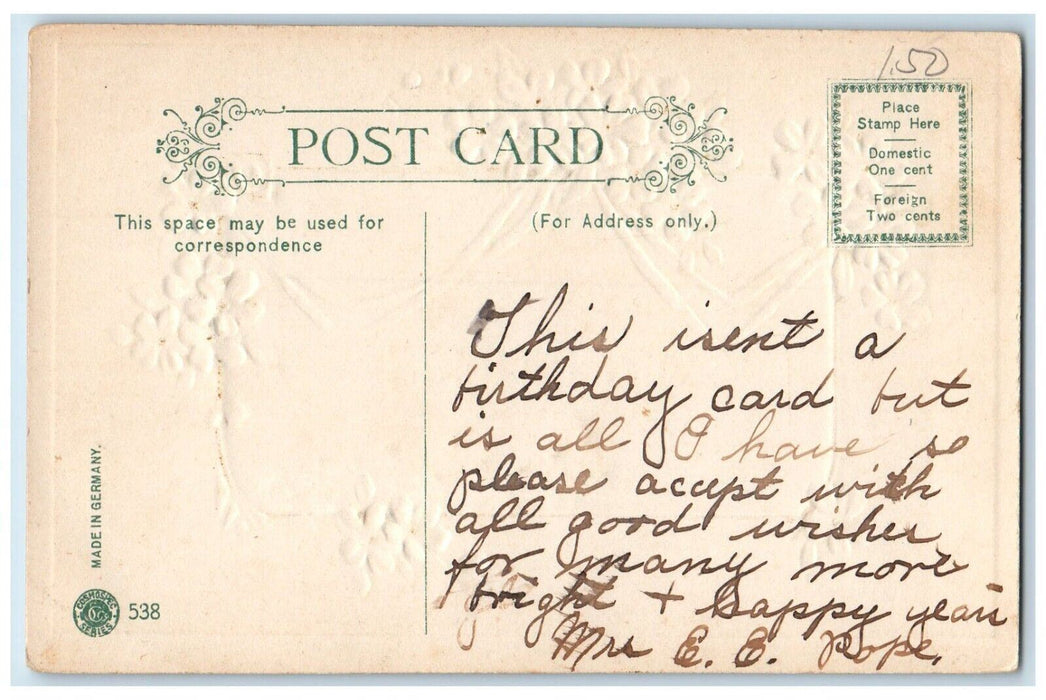 1.50
POST CARD
Place
Stamp Here
Domestic
One cent
Foreign
Two cents
This space may be used for
correspondence
(For Address only.)
This isent a
birthday card but
is all I have so
please accept with
all good wishes
for many more
bright + happy years
Mrs E. E. Pope.
MADE IN GERMANY.
COSMOS
SERIES
538